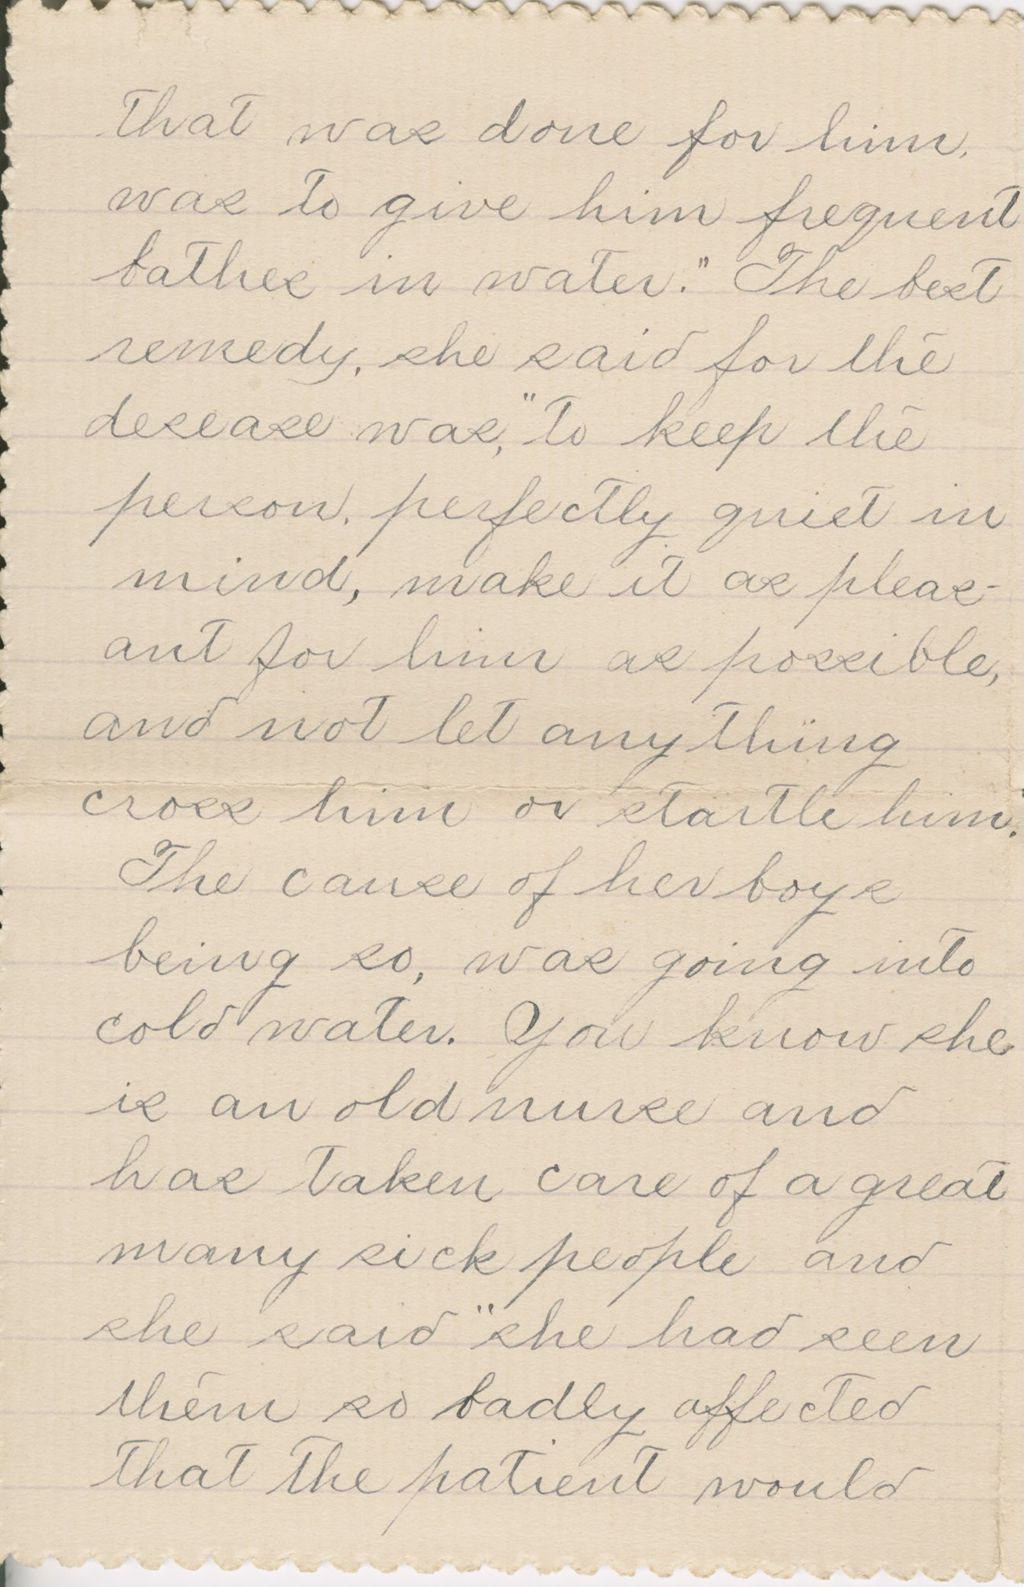 that was done for him,
was to give him frequent
bathes in water." The best
remedy, she said for the
desease was, "to keep the
person, perfectly quiet in
mind, make it as pleas-
ant for him as possible,
and not let any thing
cross him or startle him."
The cause of her boys
being so, was going into
cold water. You know she
is an old nurse and
has taken care of a great
many sick people and
she said "she had seen
them so badly affected
that the patient would